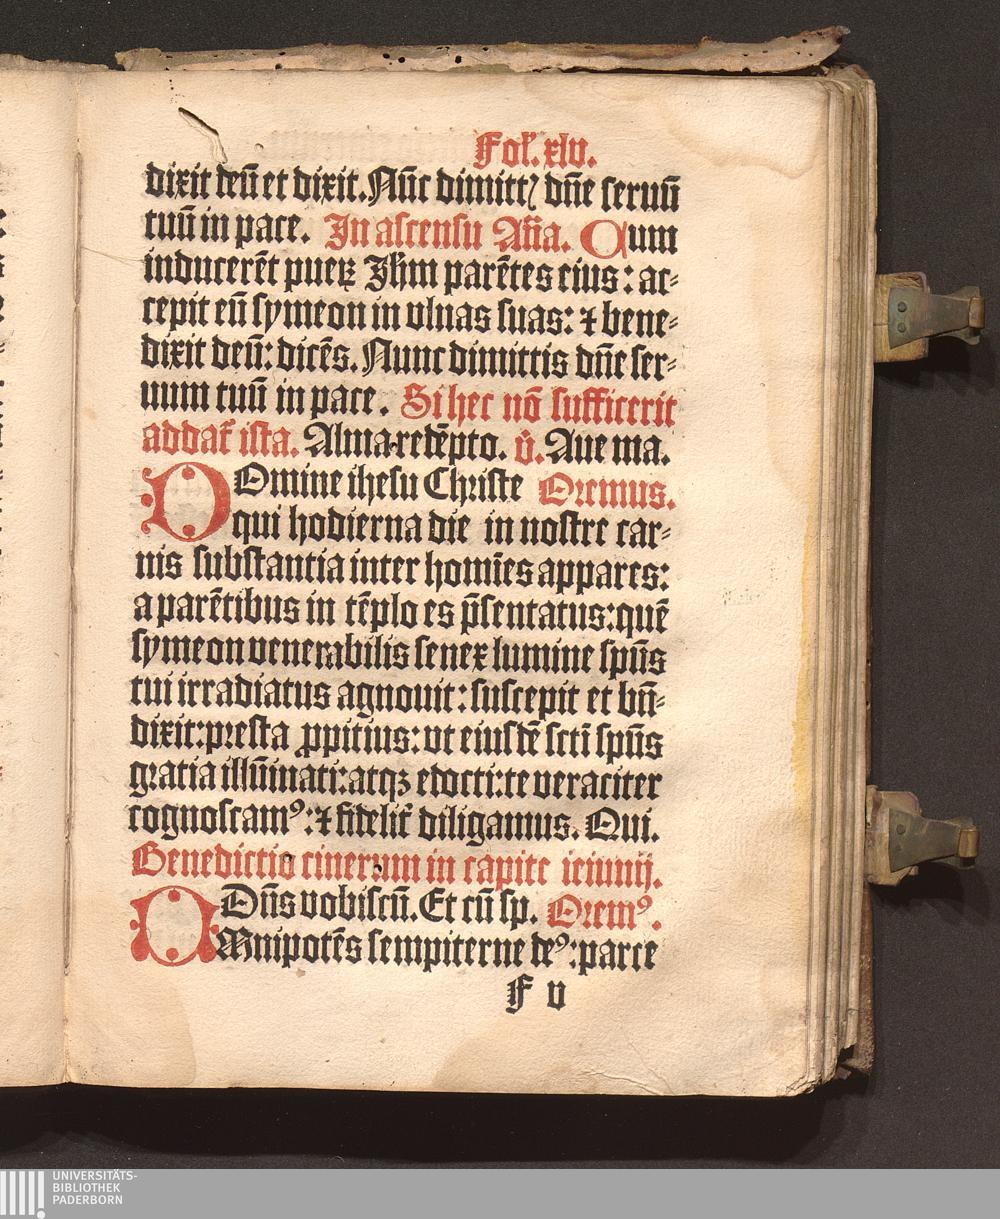 Fol. xlv.
dixit deū et dixit. Nūc dimittꝭ dn̄e seruū
tuū in pace. In ascensu Añа. Cum
inducerēt pueꝝ Jhm̄ parētes eius: ac⸗
cepit eū symeon in vlnas suas: ⁊ bene⸗
dixit deū: dicēs. Nunc dimittis dn̄e ser⸗
uum tuū in pace. Si hec nō sufficerit
addat̄ ista. Alma redēpto. v̄. Aue ma.
DOmine ihesu Christe Oremus.
qui hodierna die in nostre car⸗
nis substantia inter homīes appares:
a parētibus in tēplo es p̄sentatus: quē
symeon venerabilis senex lumine spūs
tui irradiatus agnouit: suscepit et bn̄⸗
dixit: presta ꝓpitius: vt eiusdē scti spūs
gratia illūinati: atqꝫ edocti: te veraciter
cognoscamꝰ: ⁊ fidelit̄ diligamus. Qui.
Benedictio cinerum in capite ieiunij.
Dn̄s vobiscū. Et cū sp. Oremꝰ.
OMnipotēs sempiterne deꝰ: parce
F v
UNIVERSITÄTS-
BIBLIOTHEK
PADERBORN